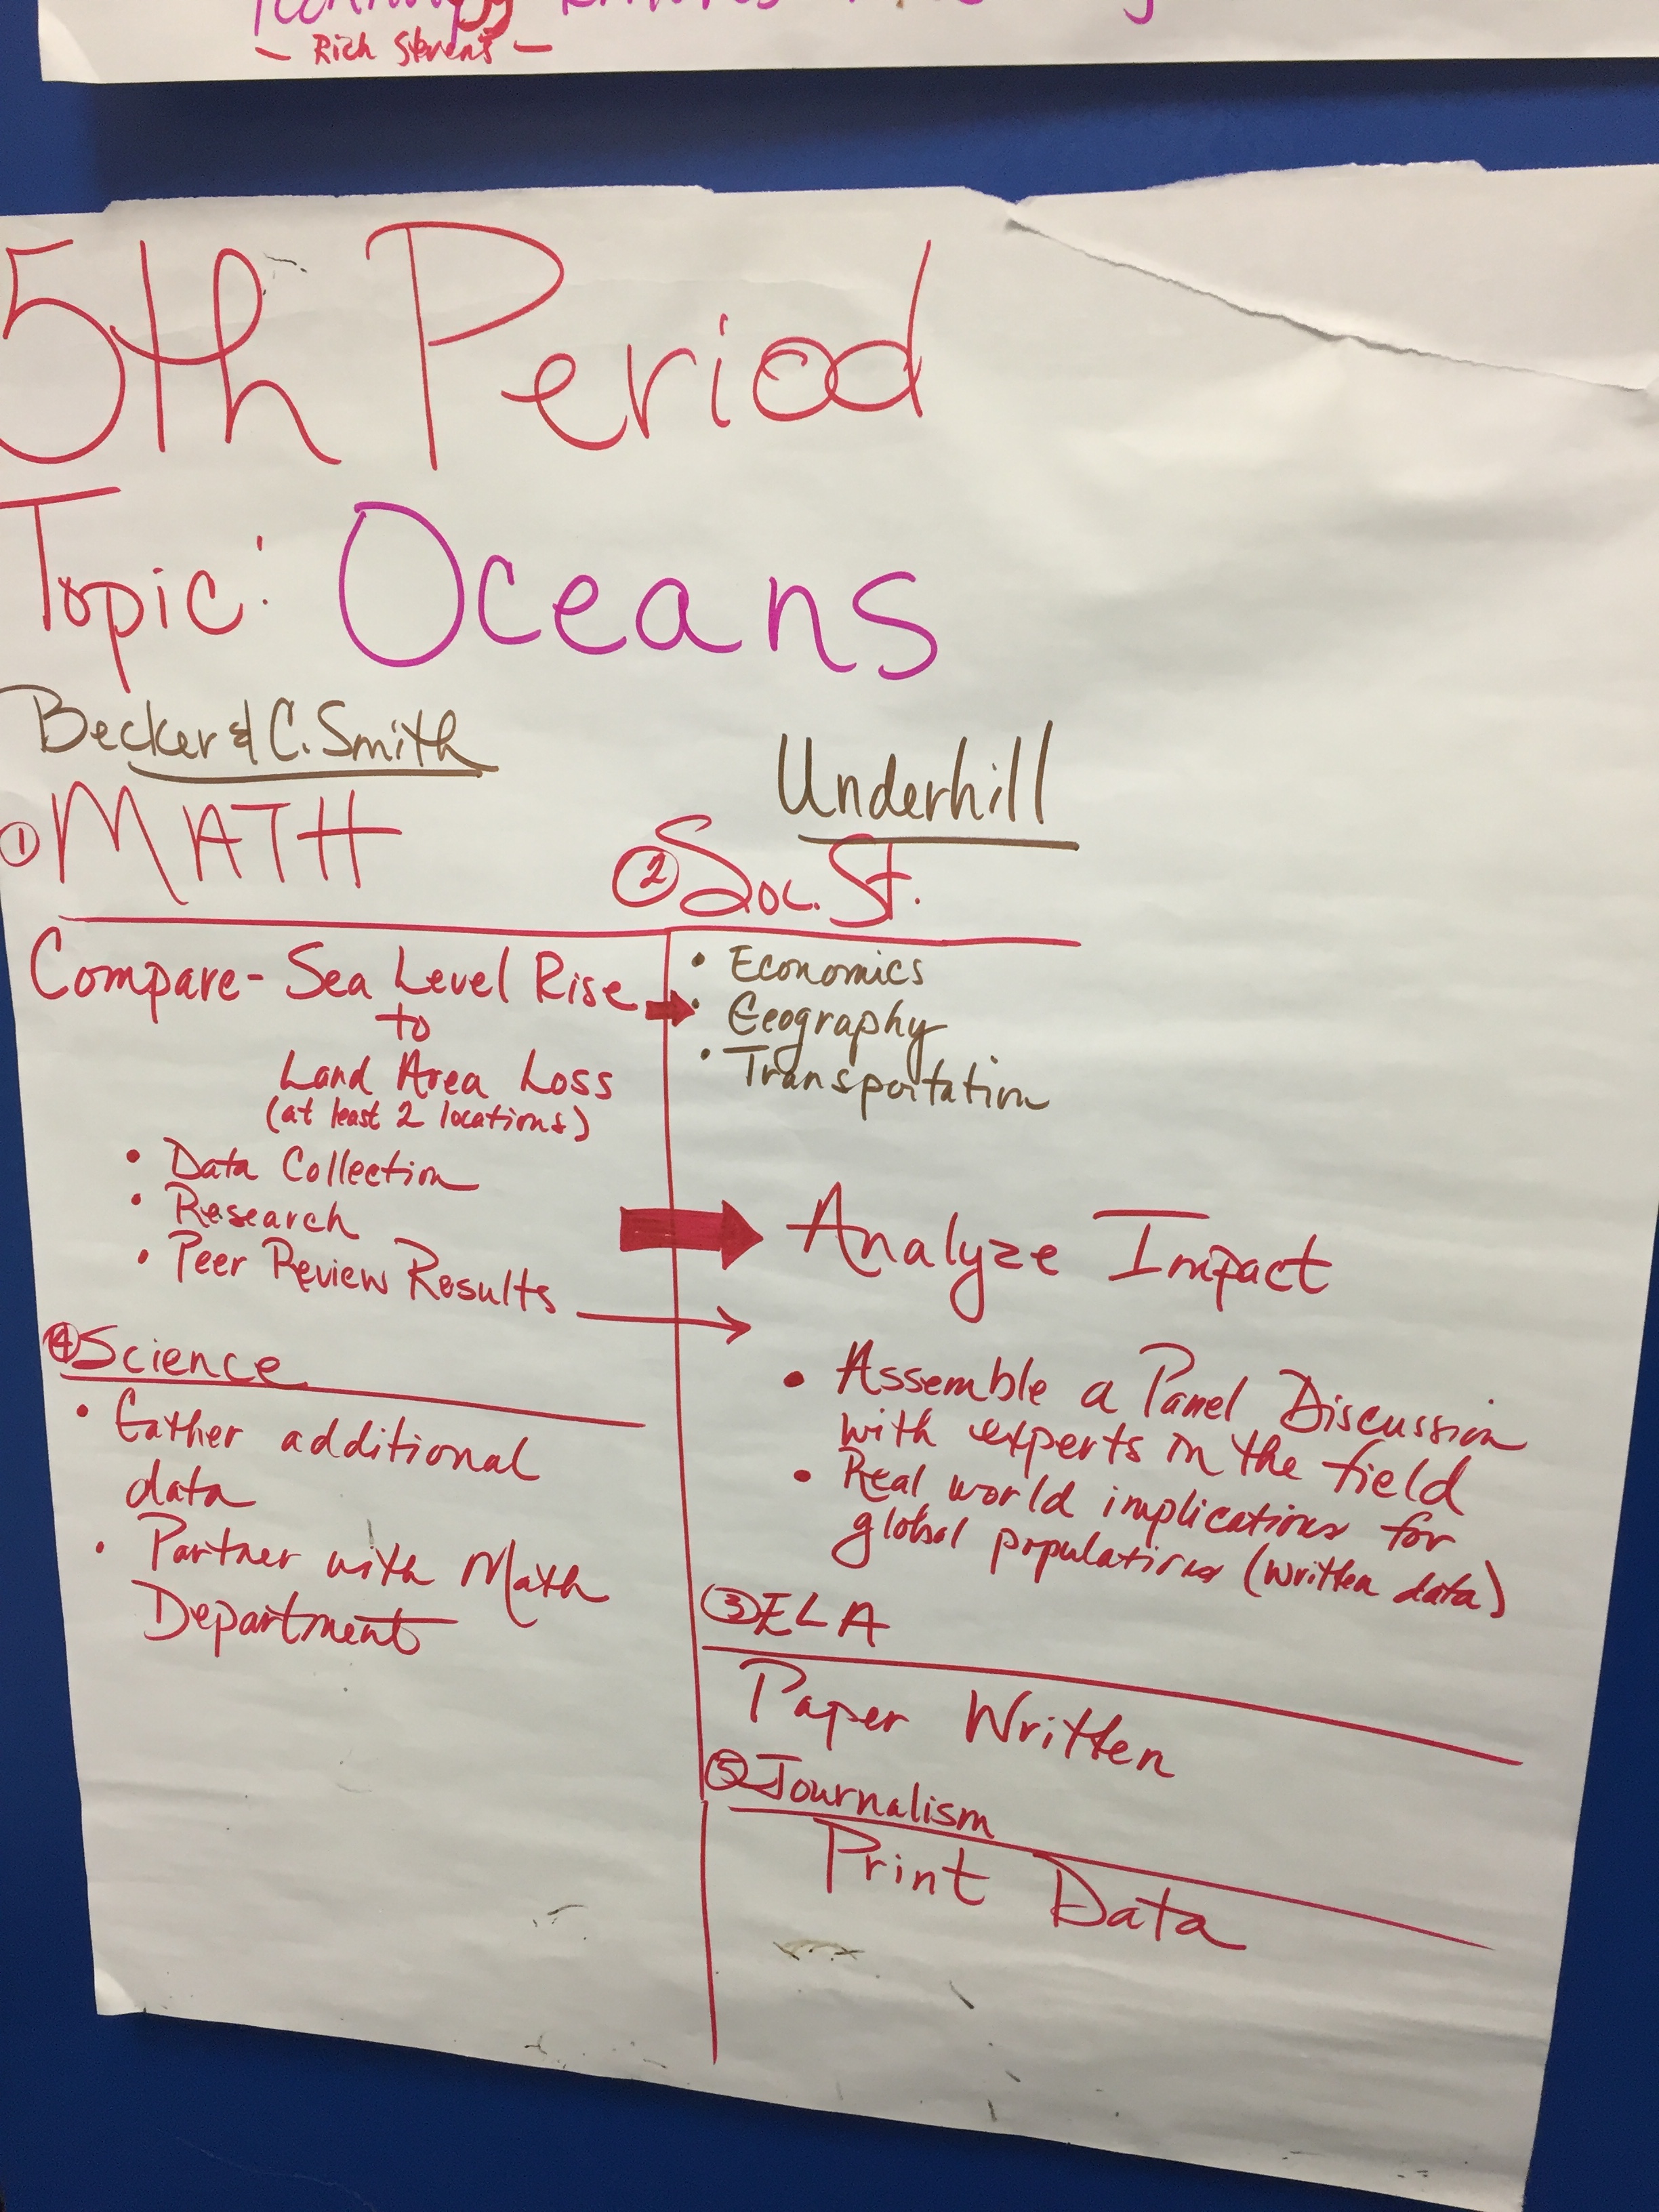 — Rich Stevens —
5th Period
Topic: Oceans
Becker & C. Smith
① MATH
Compare - Sea Level Rise
to
Land Area Loss
(at least 2 locations)
• Data Collection
• Research
• Peer Review Results
④ Science
• Gather additional
data
• Partner with Math
Department
Underhill
② Soc. St.
• Economics
• Geography
• Transportation
Analyze Impact
• Assemble a Panel Discussion
with experts in the field
• Real world implications for
global populations (written data)
③ ELA
Paper Written
⑤ Journalism
Print Data